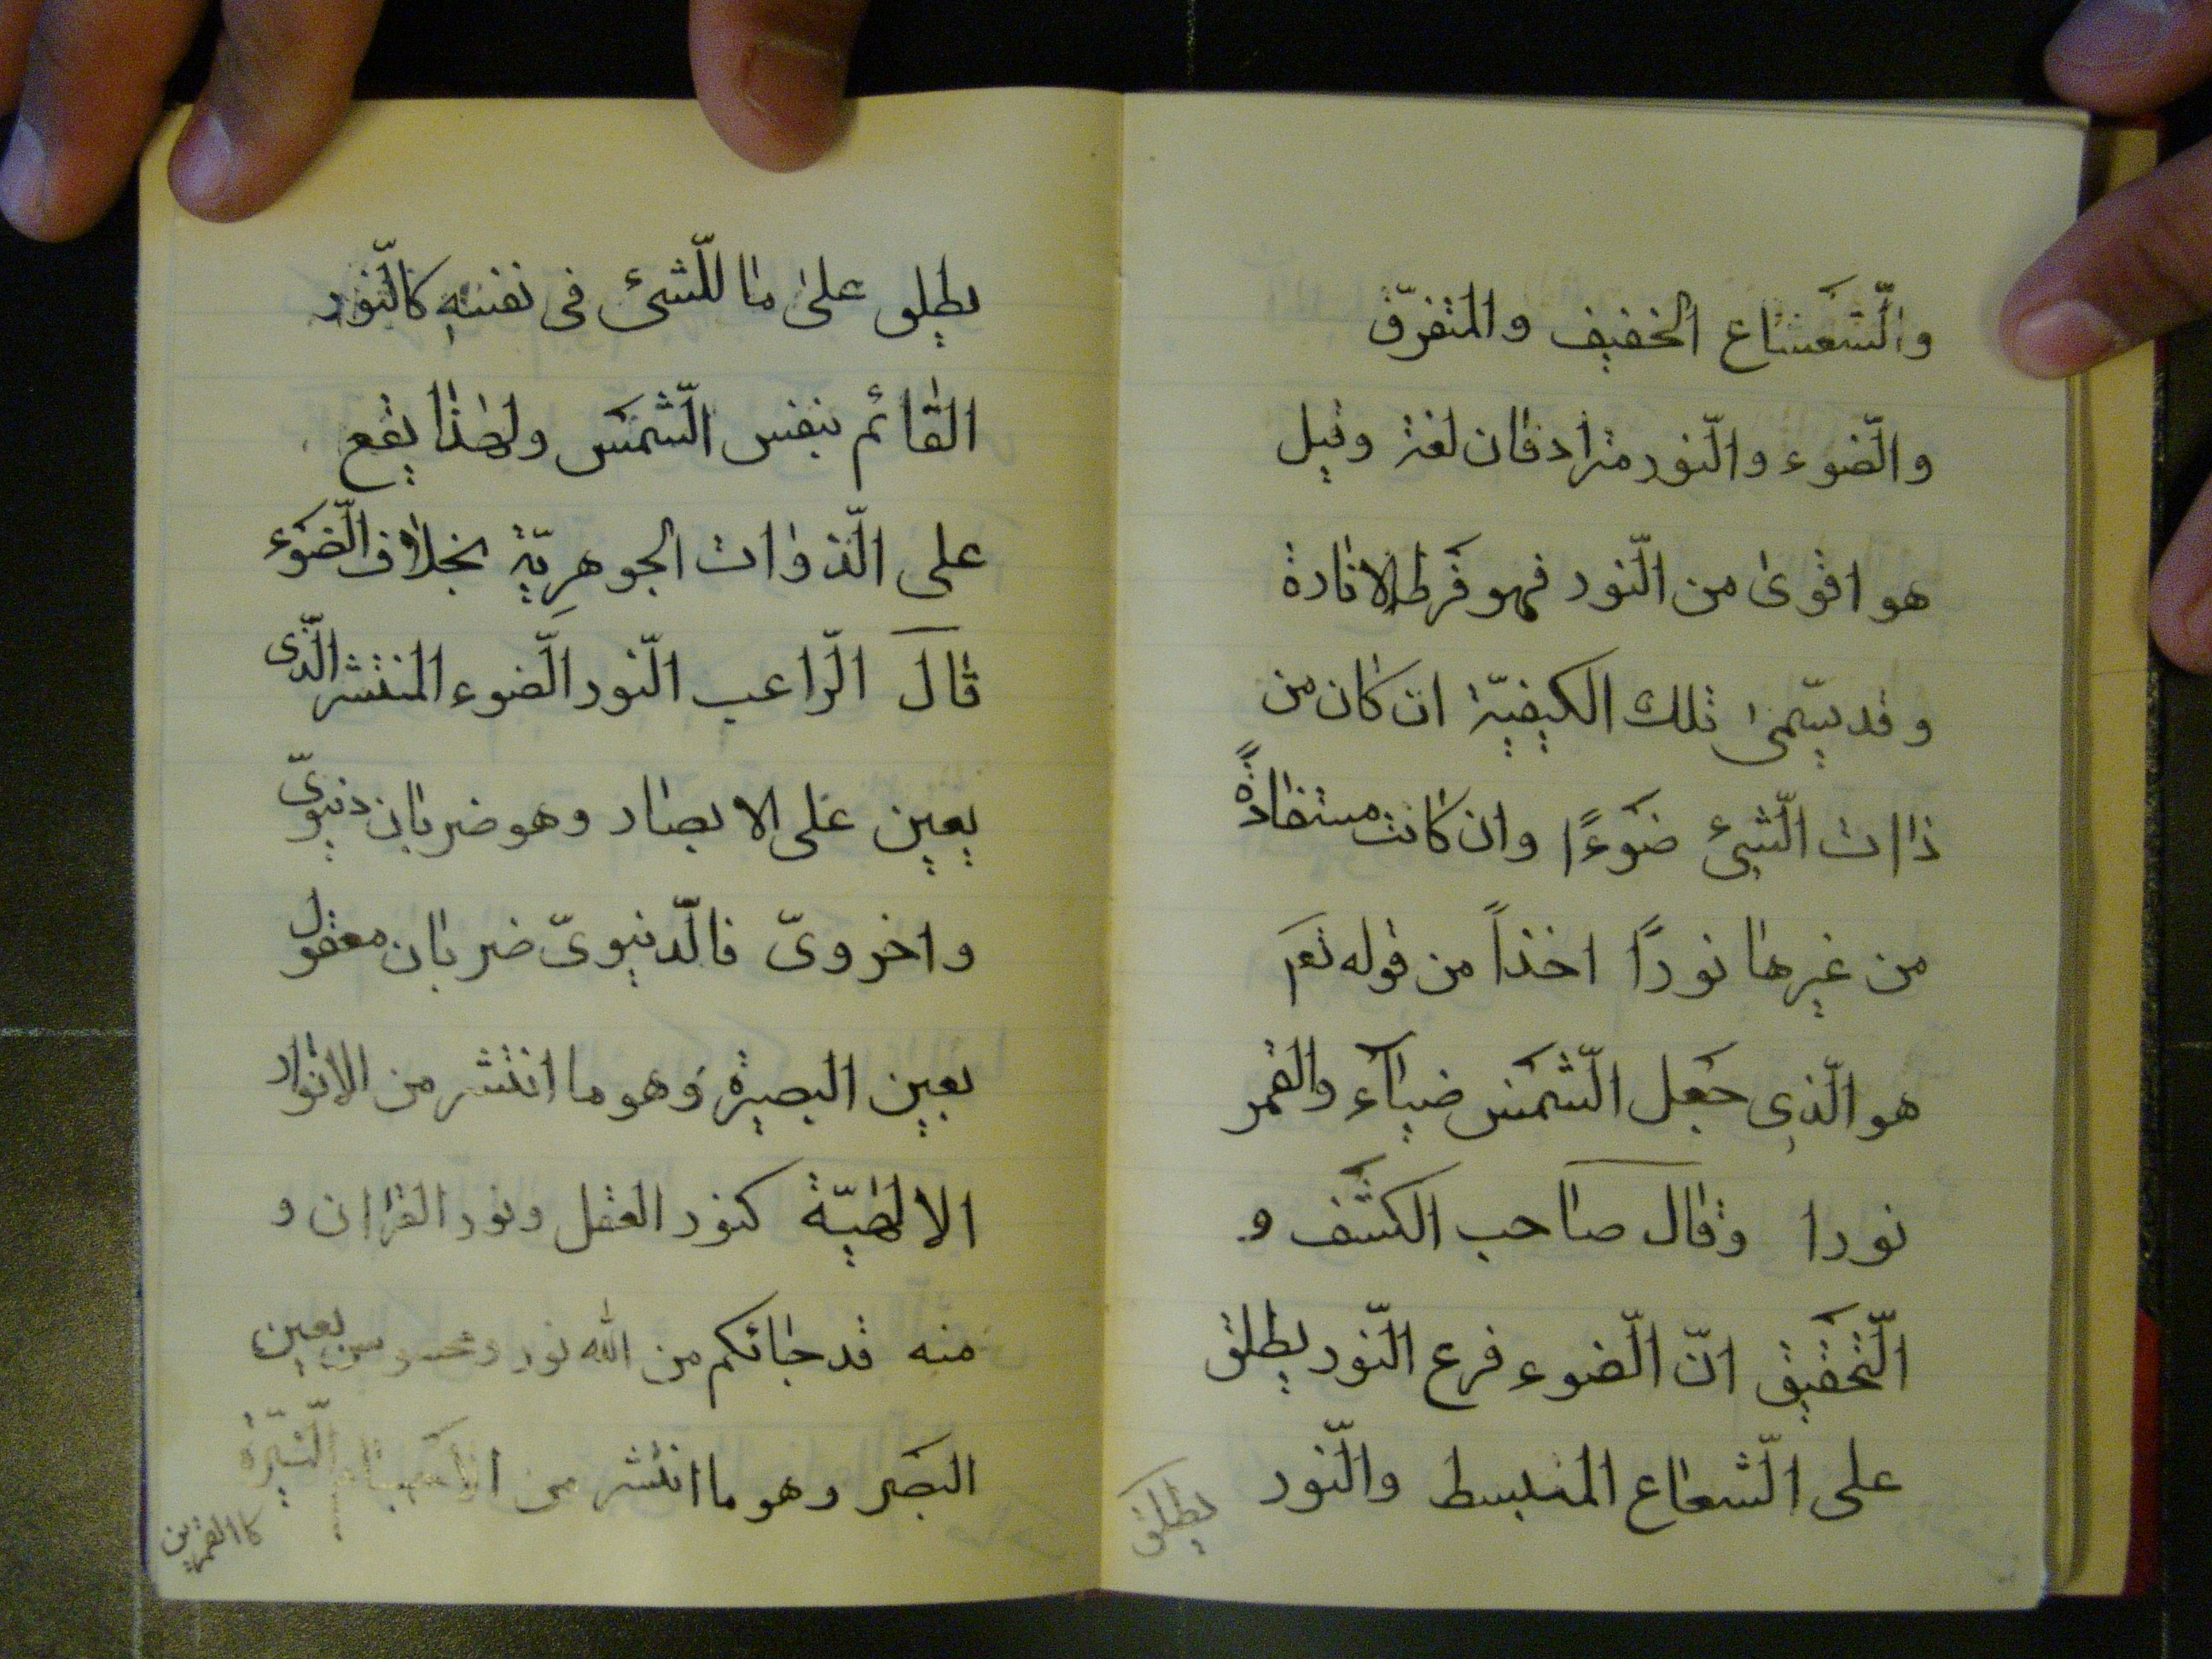 والّشَعشاع الخفيف والمتفرّق
والّضوء والّنور مترادفان لغة وقيل
هو اقوىٰ من الّنور فهو فَرط الانارة
وقد يسّمىٰ تلك الكيفيّة ان كان من
ذاات الّشيئ ضَوءًا وان كانت مستفادةً
من غيرها نورًا اخذاً من قوله تعم
هو الّذِى جَعل الّشمَس ضياۤء والقمر
نورا وقال صاحب الكشَف و
الّتحقَيق انّ الّضوء فرع الّنور يطلق
على الّشعاع المنبسط والّنور
يطلق
يطلق علىٰ ما للّشئ فى نفسهِ كالّنور
القائم بنفس الّشمَس ولهٰذا يقع
على الّذوات الجوهرِيّة بخلاف الّضَوء
قالَ الّراغب الّنور الّضوء المنتشر الّذى
يعين عَلى الابصار وهو ضربان دنيوىّ
واخروىّ فالّدنيوىّ ضربان معقول
بعين البصيرة وَهو ما انتشر من الانوار
الالهيّة كنور العقل ونور القراان و
منه قد جائكم من الله نور ومحسوس بعين
البصَر وهو ما انتشر من الاجسام الّنيّرة
كاالقمرين